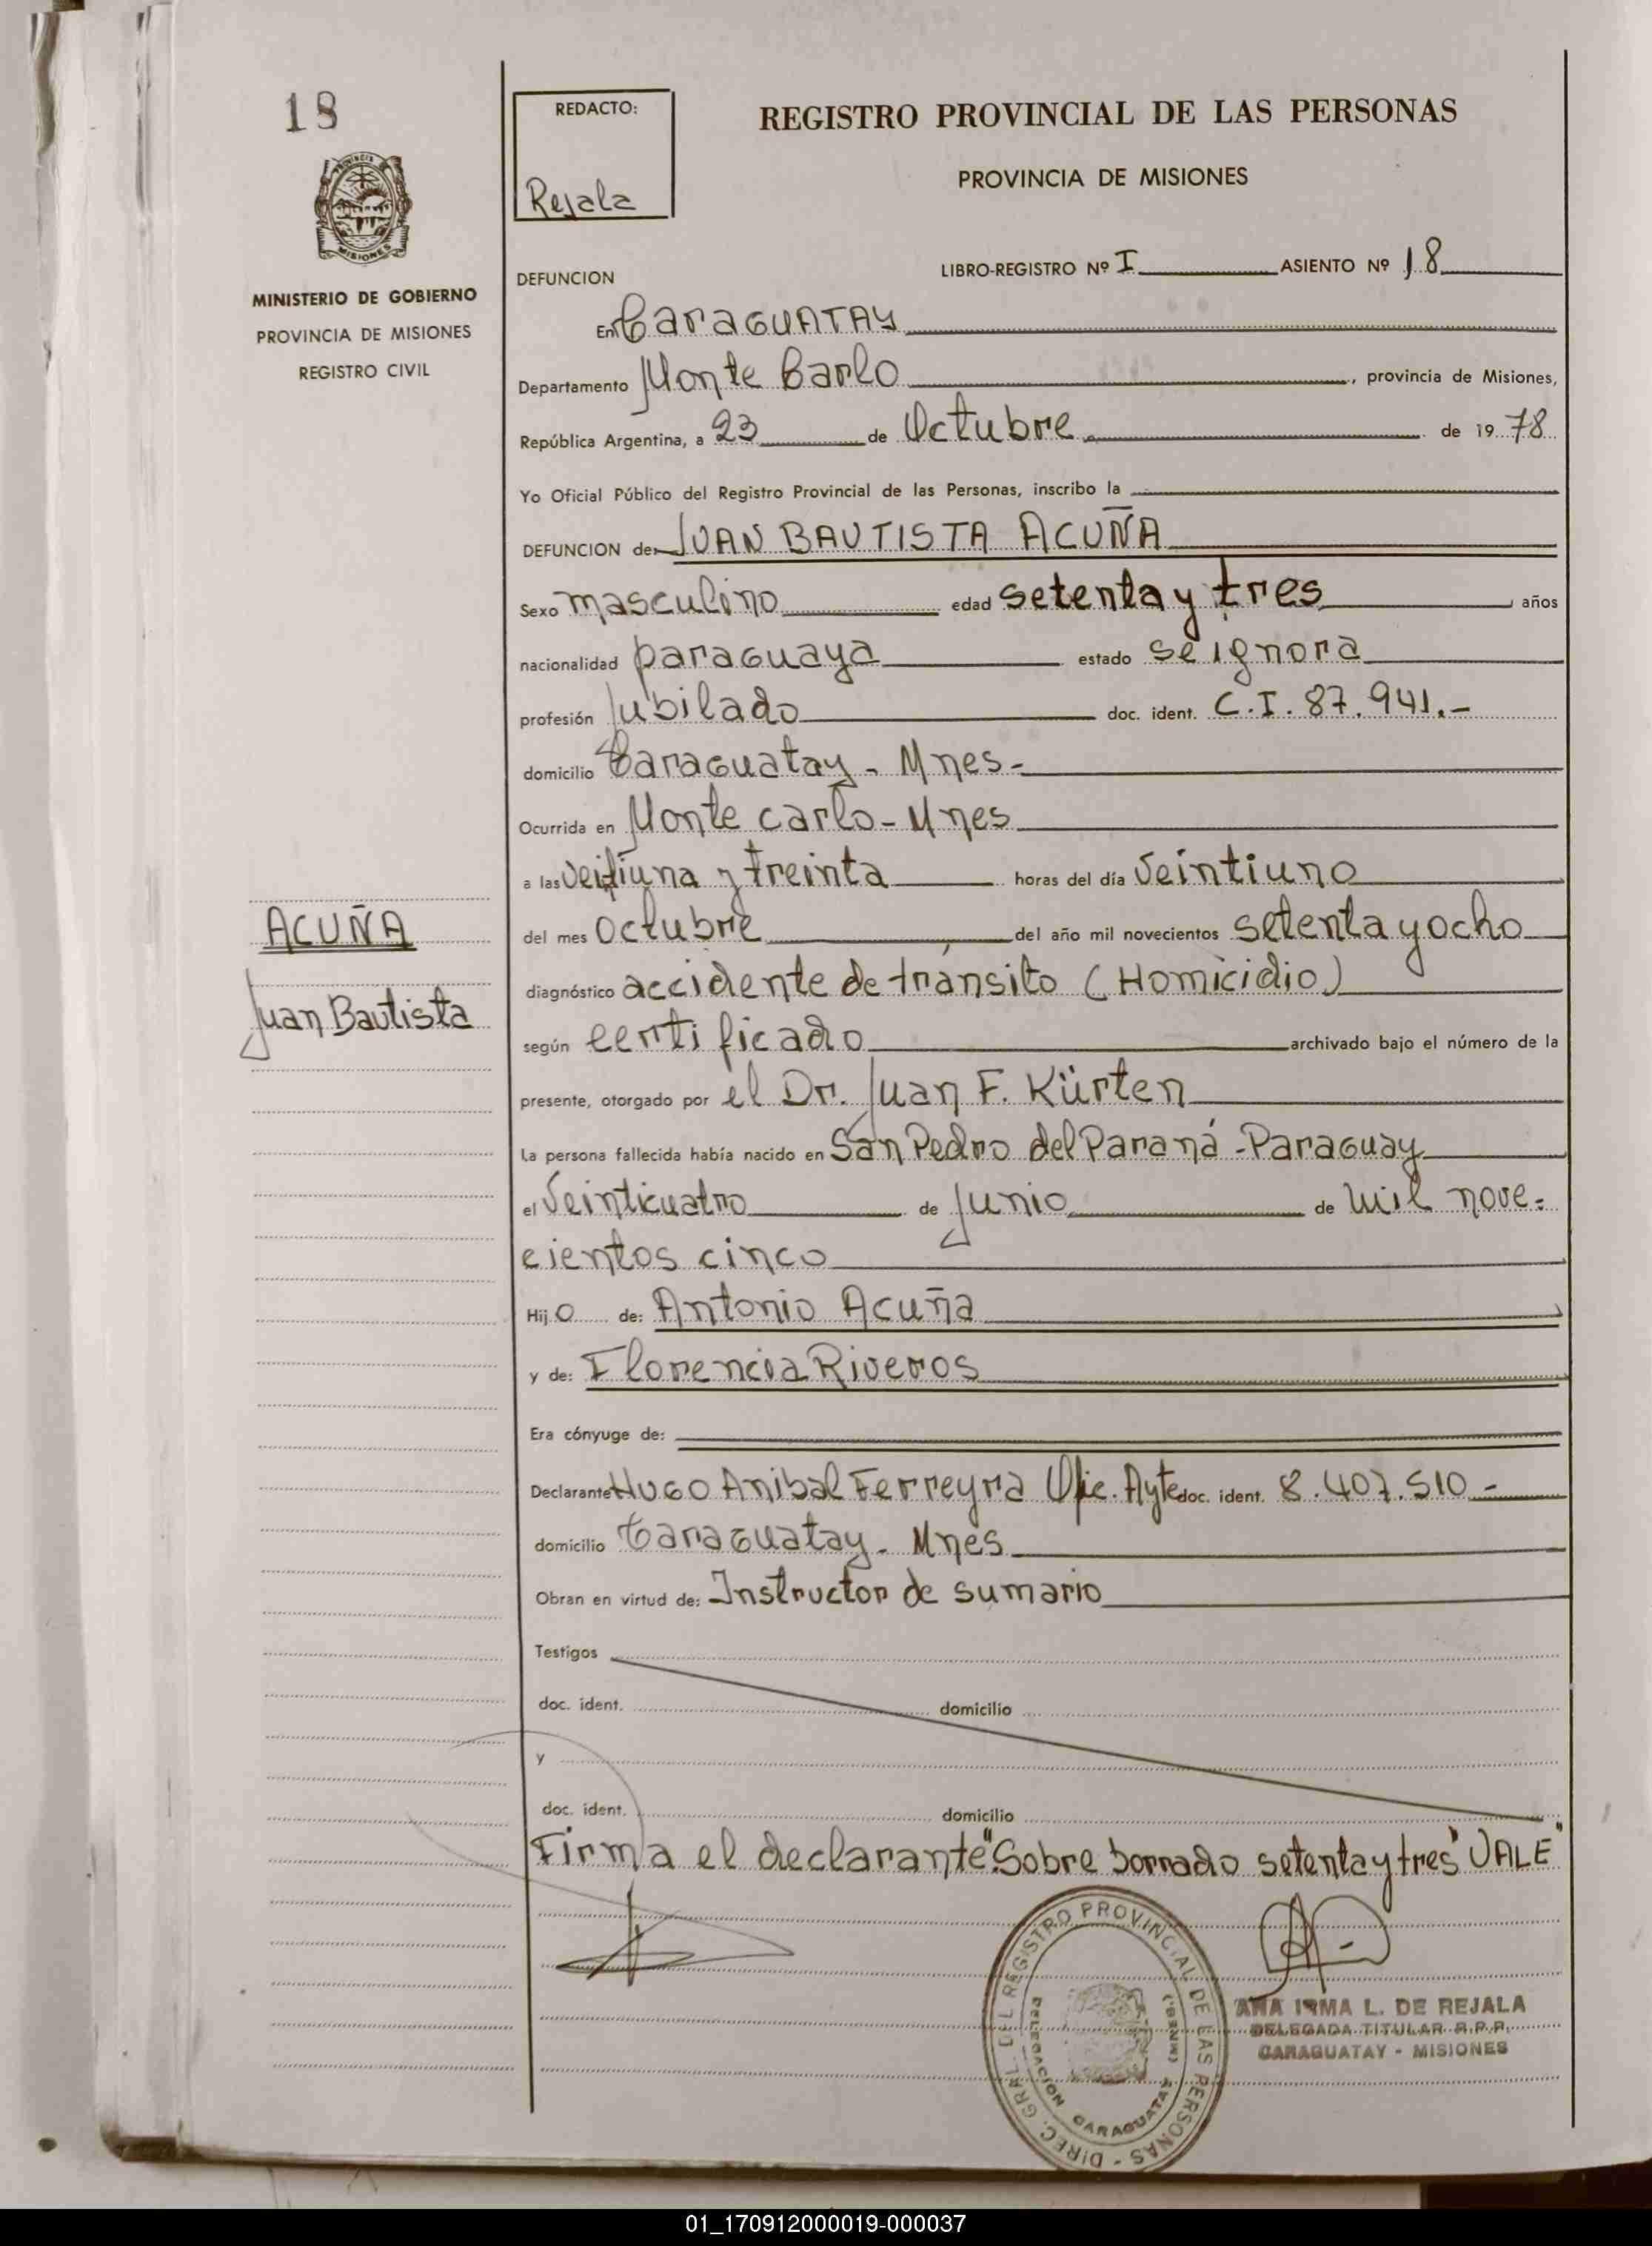 18
PROVINCIA DE
MISIONES
MINISTERIO DE GOBIERNO
PROVINCIA DE MISIONES
REGISTRO CIVIL
ACUÑA
Juan Bautista
REDACTO:
Rejala
REGISTRO PROVINCIAL DE LAS PERSONAS
PROVINCIA DE MISIONES
LIBRO-REGISTRO Nº I ASIENTO Nº 18
DEFUNCION
En CaraGUATAY
Departamento Monte Carlo, provincia de Misiones,
República Argentina, a 23 de Octubre de 1978
Yo Oficial Público del Registro Provincial de las Personas, inscribo la
DEFUNCION de JUAN BAUTISTA ACUÑA
Sexo masculino edad setenta y tres años
nacionalidad paraguaya estado se ignora
profesión Jubilado doc. ident. C.I. 87.941.-
domicilio Caraguatay - Mnes-
Ocurrida en Monte carlo - Mnes
a las veintiuna y treinta horas del día veintiuno
del mes octubre del año mil novecientos setenta y ocho
diagnóstico accidente de tránsito (Homicidio)
según certificado archivado bajo el número de la
presente, otorgado por el Dr. Juan F. Kürten
La persona fallecida había nacido en San Pedro del Paraná - Paraguay
el veinticuatro de Junio de mil nove=
cientos cinco
Hijo de: Antonio Acuña
y de: Florencia Riveros
Era cónyuge de:
Declarante Hugo Anibal Ferreyra Ofic. Ayte doc. ident. 8.407.510-
domicilio Caraguatay - Mnes
Obran en virtud de: Instructor de sumario
Testigos
doc. ident. domicilio
y
doc. ident. domicilio
Firma el declarante "Sobre borrado setenta y tres" VALE"
DIREC. GRAL. DEL REGISTRO PROVINCIAL DE LAS PERSONAS -
DELEGACION CARAGUATAY (MNES.)
ANA IRMA L. DE REJALA
DELEGADA TITULAR R.P.P.
CARAGUATAY - MISIONES
01_170912000019-000037